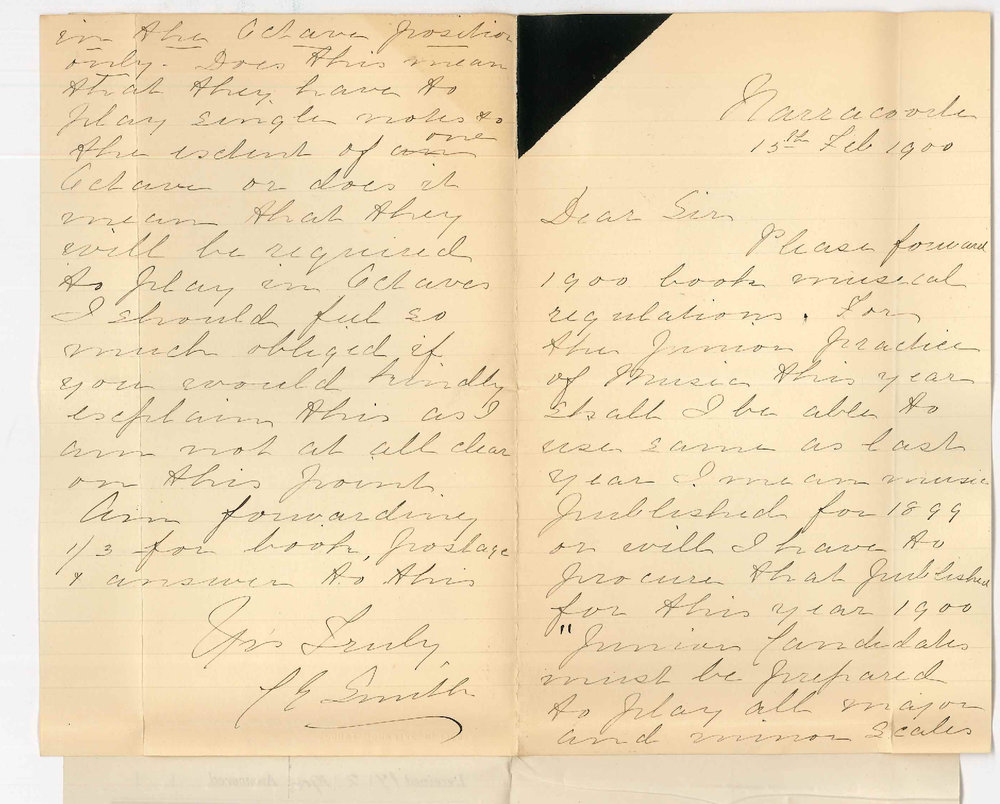 Narracoorte
15th Feb 1900
Dear Sir
Please forward
1900 book musical
regulations. For
the Junior Practice
of Music this year
shall I be able to
use same as last
year I mean music
published for 1899
or will I have to
procure that published
for this year 1900
"Junior Candidates
must be prepared
to play all major
and minor scales
in the Octave position
only. Does this mean
that they have to
play single notes to
the extent of an one
Octave or does it
mean that they
will be required
to play in Octaves
I should feel so
much obliged if
you would kindly
explain this as I
am not at all clear
on this point
Am forwarding
1/3 for book, postage
& answer to this
Yrs Truly
Smith